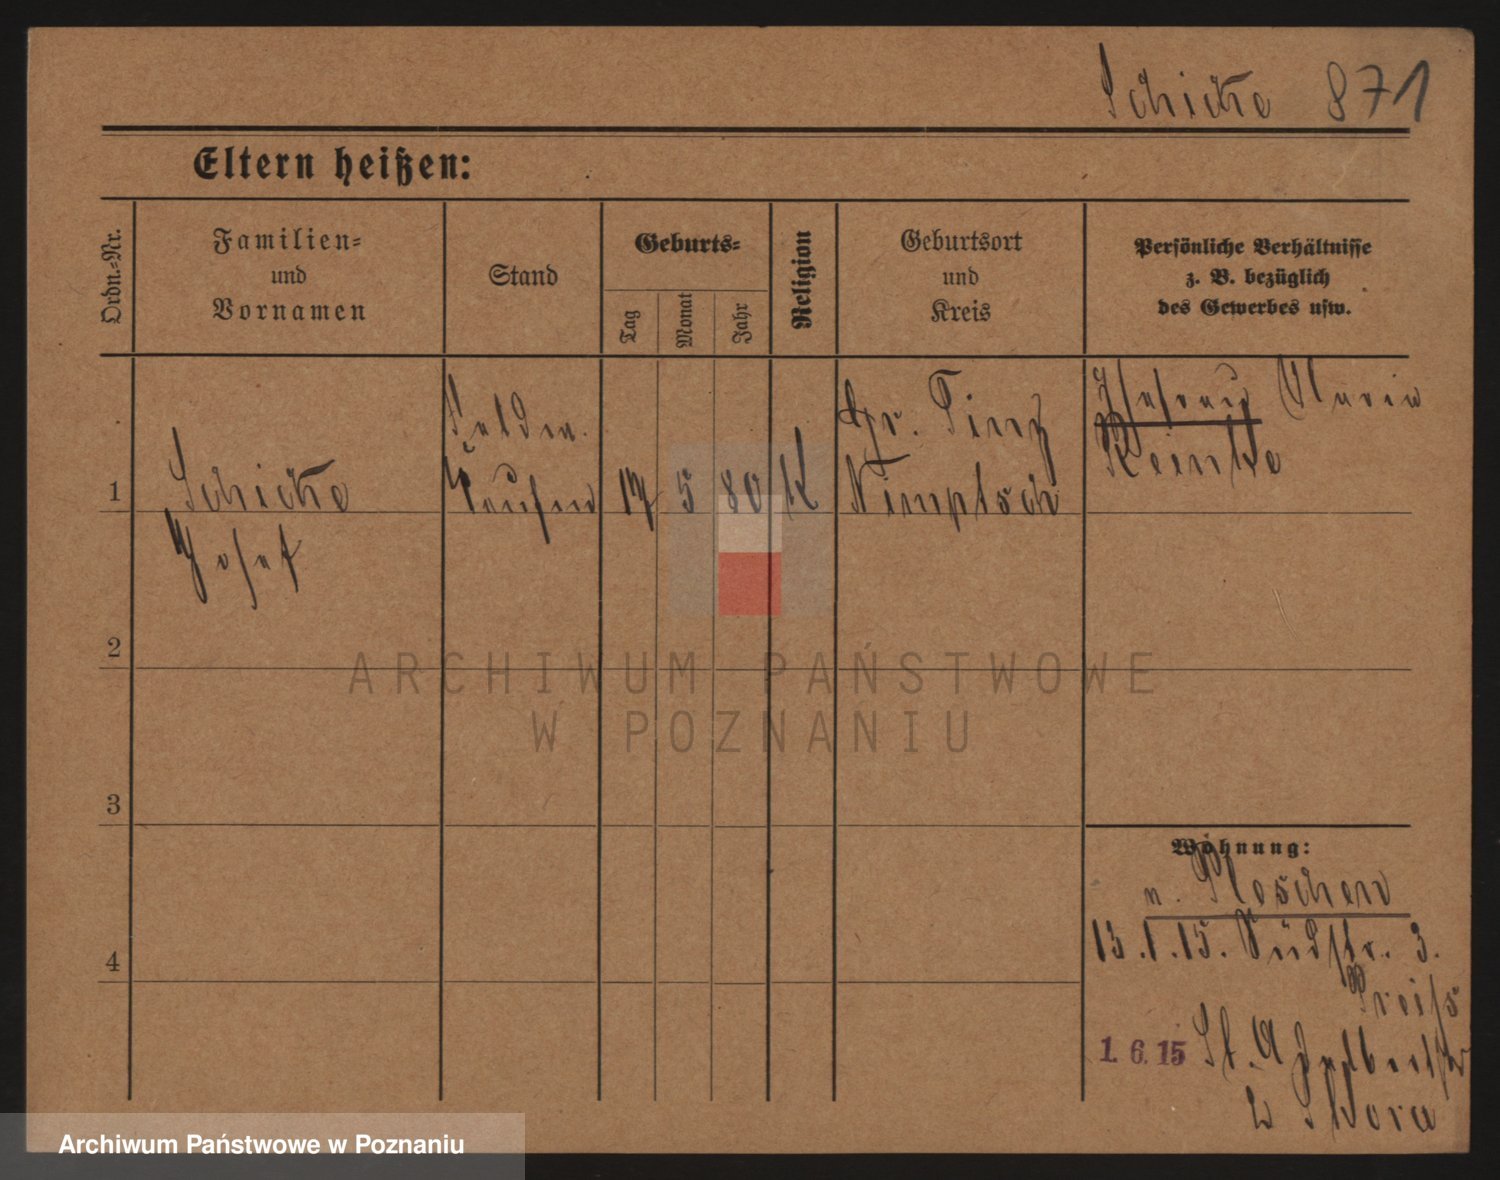 Schicke 871
Eltern heißen:
Ordn.-Nr.
Familien-
und
Vornamen
Stand
Geburts-
Tag
Monat
Jahr
Religion
Geburtsort
und
Kreis
Persönliche Verhältnisse
z. B. bezüglich
des Gewerbes usw.
1
Schicke
Josef
17
5
80
K
Gr. Tinz
Nimptsch
Ehefrau Maria
Reinke
2
3
4
ARCHIWUM PAŃSTWOWE
W POZNANIU
Wohnung:
n. Pleschen
13.1.15. Südstr. 3.
Preiß
1. 6. 15 St. Adalbertstr
2 Skora
Archiwum Państwowe w Poznaniu